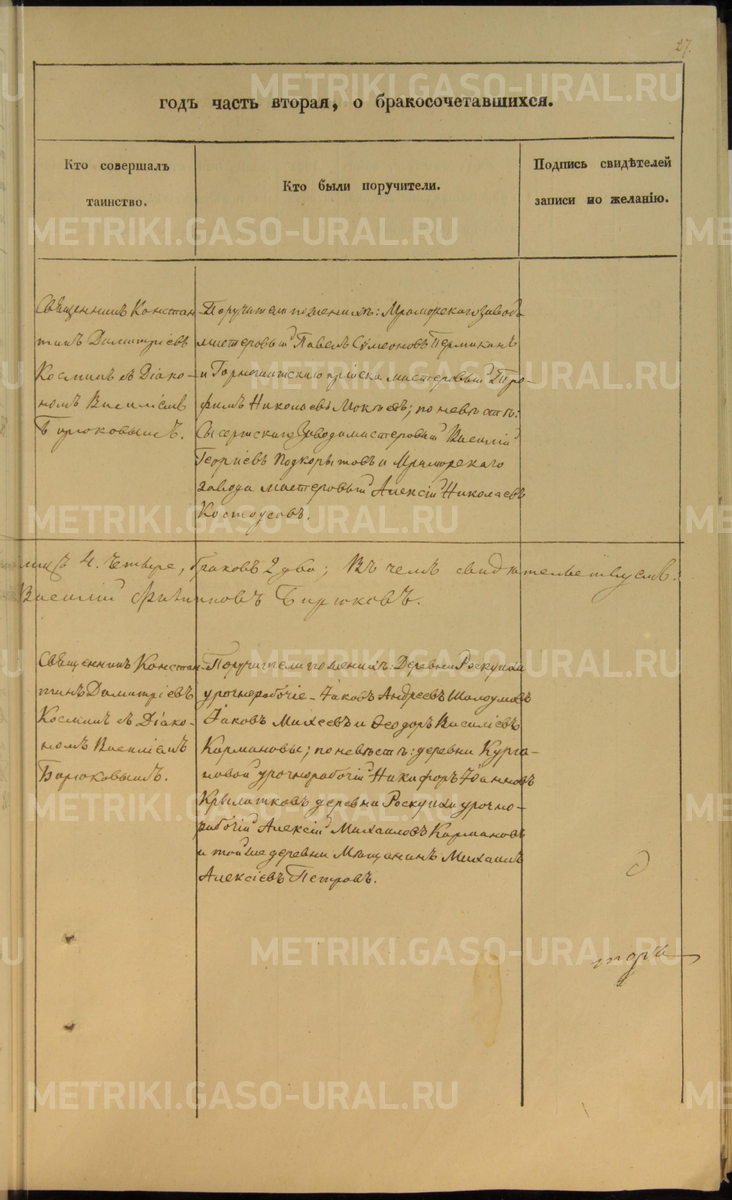 27.
годъ часть вторая, о бракосочетавшихся.
Кто совершалъ
таинство.
Кто были поручители.
Подпись свидѣтелей
записи по желанію.
Священникъ Констан-
тинъ Димитріевъ
Косминъ съ Діако-
номъ Василіемъ
Бирюковымъ.
Поручители по женихѣ: Мраморскаго завода
мастеровый Павелъ Сѵмеоновъ Пермикинъ
и Горнощитскаго пріиска мастеровый Тро-
фимъ Николаевъ Мокѣевъ; по невѣстѣ:
Сысертскаго Завода мастеровый Василій
Георгіевъ Подкорытовъ и Мраморскаго
завода мастеровый Алексій Николаевъ
Костоусовъ.
4. четыре, браковъ 2 два; Въ чемъ свидѣтельствуемъ:
Василій Филипповъ Бирюковъ.
Священникъ Констан-
тинъ Димитріевъ
Косминъ съ Діако-
номъ Василіемъ
Бирюковымъ.
Поручители по женихѣ: Деревни Роскуихи
урочнорабочіе Іаковъ Андреевъ Шалоумовъ
Іаковъ Михеевъ и Ѳеодоръ Василіевъ
Кармановы; по невѣстѣ: деревни Курга-
новой урочнорабочій Никифоръ Іоанновъ
Крылатковъ деревни Роскуихи урочно-
рабочій Алексій Михаиловъ Кармановъ
и той же деревни Мѣщанинъ Михаилъ
Алексіевъ Петровъ.
METRIKI.GASO-URAL.RU